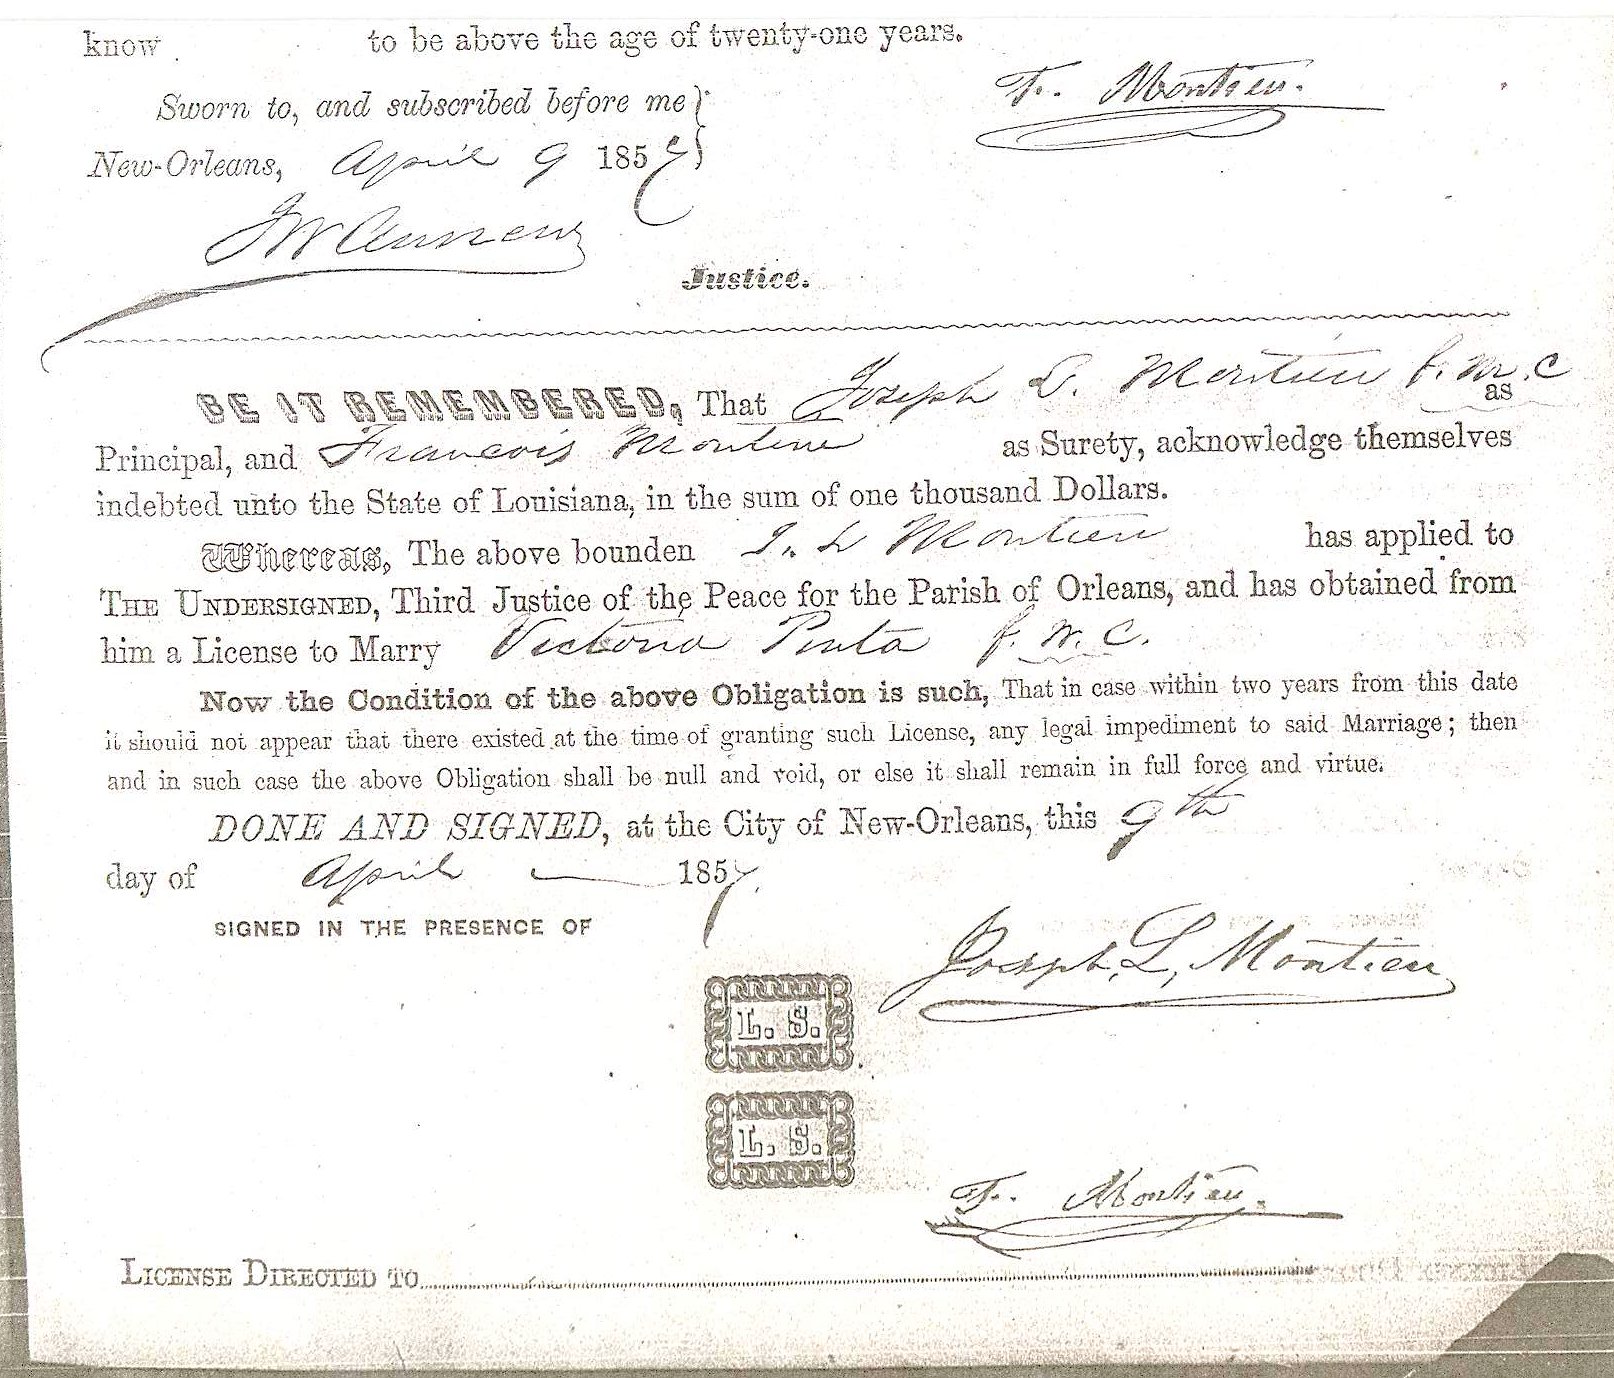 know to be above the age of twenty-one years.
F. Montieu.
Sworn to, and subscribed before me
New-Orleans, April 9 1857
Justice.
BE IT REMEMBERED, That Joseph L. Montieu f.m.c as
Principal, and Francois Montieu as Surety, acknowledge themselves
indebted unto the State of Louisiana, in the sum of one thousand Dollars.
Whereas, The above bounden J. L Montieu has applied to
THE UNDERSIGNED, Third Justice of the Peace for the Parish of Orleans, and has obtained from
him a License to Marry Victoria f. w. c.
Now the Condition of the above Obligation is such, That in case within two years from this date
it should not appear that there existed at the time of granting such License, any legal impediment to said Marriage; then
and in such case the above Obligation shall be null and void, or else it shall remain in full force and virtue.
DONE AND SIGNED, at the City of New-Orleans, this 9th
day of April 1857.
SIGNED IN THE PRESENCE OF
Joseph, L, Montieu
L. S.
L. S.
F. Montieu.
LICENSE DIRECTED TO